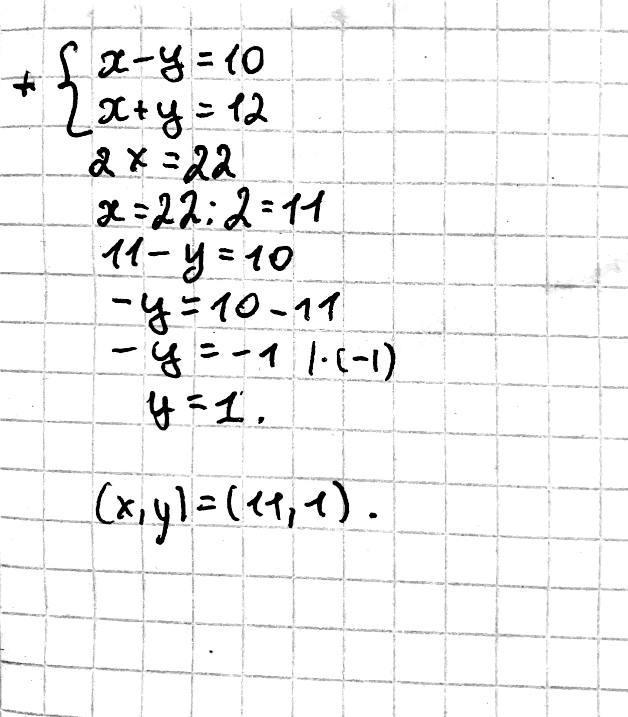 + { x-y=10
x+y=12
2x=22
x=22:2=11
11-y=10
-y=10-11
-y=-1 |·(-1)
y=1.
(x,y)=(11,1).